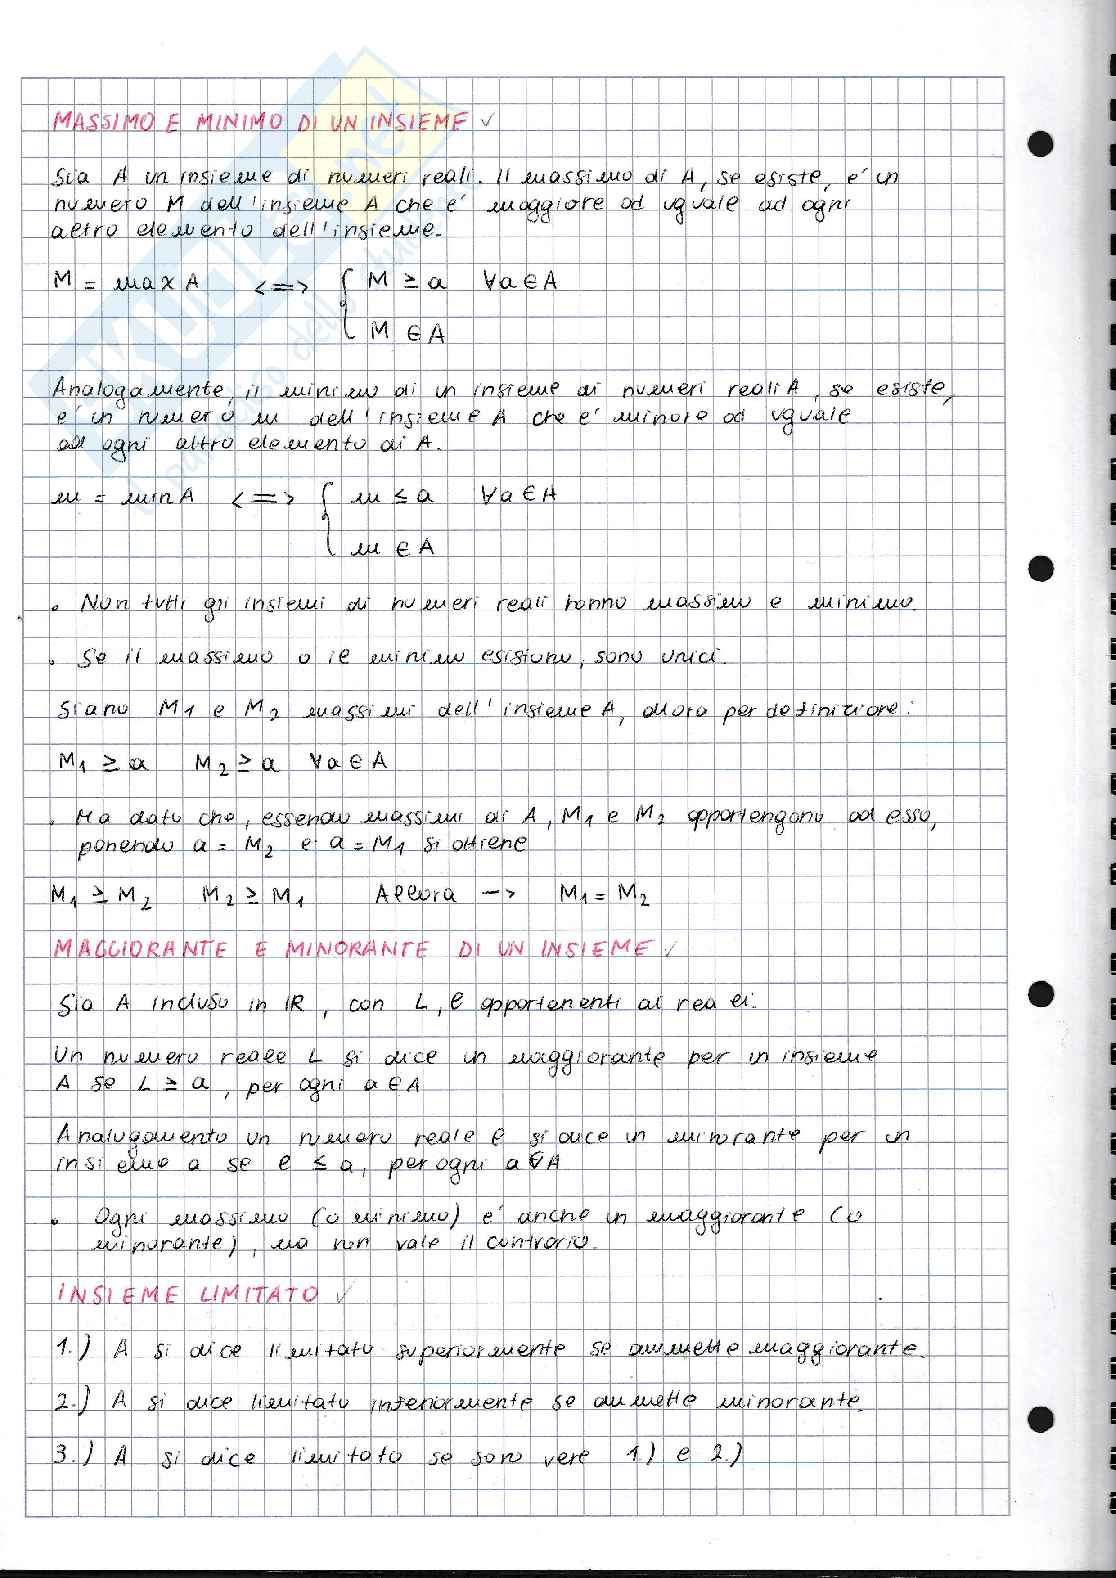 MASSIMO E MINIMO DI UN INSIEME ✓
Sia A un insieme di numeri reali. Il massimo di A, se esiste, e' un
numero M dell'insieme A che e' maggiore od uguale ad ogni
altro elemento dell'insieme.
M = max A <=> { M ≥ a ∀a∈A
M ∈ A
Analogamente, il minimo di un insieme di numeri reali A, se esiste,
e' un numero m dell'insieme A che e' minore od uguale
ad ogni altro elemento di A.
m = min A <=> { m ≤ a ∀a∈A
m ∈ A
• Non tutti gli insiemi di numeri reali hanno massimo e minimo.
• Se il massimo o il minimo esistono, sono unici.
Siano M1 e M2 massimi dell'insieme A, allora per definizione:
M1 ≥ a M2 ≥ a ∀a∈A
• Ma dato che, essendo massimi di A, M1 e M2 appartengono ad esso,
ponendo a = M2 e a = M1 si ottiene
M1 ≥ M2 M2 ≥ M1 Allora –> M1 = M2
MAGGIORANTE E MINORANTE DI UN INSIEME ✓
Sia A incluso in IR, con L, l appartenenti ai reali.
Un numero reale L si dice un maggiorante per un insieme
A se L ≥ a, per ogni a∈A
Analogamento un numero reale l si dice un minorante per un
insieme a se l ≤ a, per ogni a∈A
• Ogni massimo (o minimo) e' anche un maggiorante (o
minorante), ma non vale il contrario.
INSIEME LIMITATO ✓
1.) A si dice limitato superiormente se ammette maggiorante.
2.) A si dice limitato inferiormente se ammette minorante.
3.) A si dice limitato se sono vere 1.) e 2.)